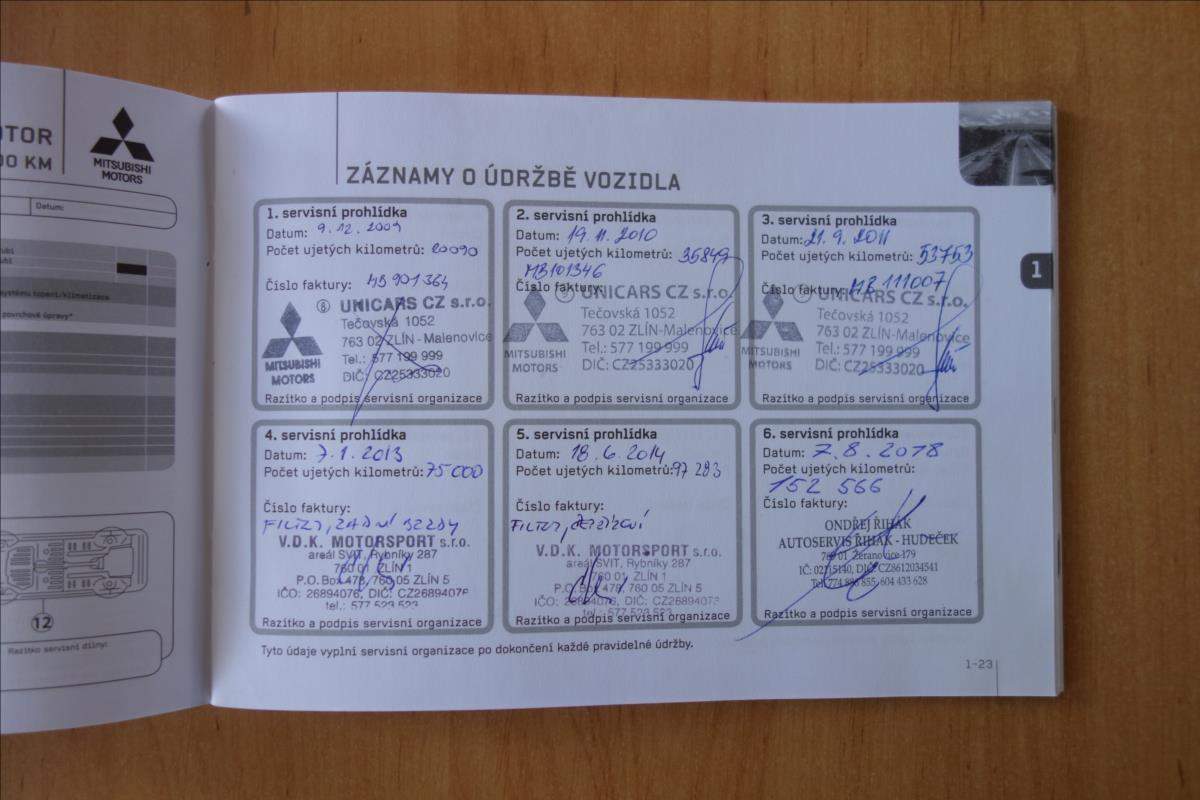 OTOR
00 KM
MITSUBISHI
MOTORS
Datum:
systému topení/klimatizace
povrchové úpravy*
12
Razítko servisní dílny:
ZÁZNAMY O ÚDRŽBĚ VOZIDLA
1
1. servisní prohlídka
Datum: 9.12.2009
Počet ujetých kilometrů: 20090
Číslo faktury: MB901364
8 UNICARS CZ s.r.o.
Tečovská 1052
763 02 ZLÍN-Malenovice
Tel.: 577 199 999
DIČ: CZ25333020
MITSUBISHI
MOTORS
Razítko a podpis servisní organizace
2. servisní prohlídka
Datum: 19.11.2010
Počet ujetých kilometrů: 35849
MB101346
Číslo faktury:
9 UNICARS CZ s.r.o.
Tečovská 1052
763 02 ZLÍN-Malenovice
Tel.: 577 199 999
DIČ: CZ25333020
MITSUBISHI
MOTORS
Razítko a podpis servisní organizace
3. servisní prohlídka
Datum: 21.9.2011
Počet ujetých kilometrů: 53753
Číslo faktury: MB 111007
UNICARS CZ s.r.o.
Tečovská 1052
763 02 ZLÍN-Malenovice
Tel.: 577 199 999
DIČ: CZ25333020
MITSUBISHI
MOTORS
Razítko a podpis servisní organizace
4. servisní prohlídka
Datum: 7.1.2013
Počet ujetých kilometrů: 75000
Číslo faktury:
FILTRY, ZADNÍ BRZDY
V.D.K. MOTORSPORT s.r.o.
areál SVIT, Rybníky 287
760 01 ZLÍN 1
P.O.Box 478, 760 05 ZLÍN 5
IČO: 26894076, DIČ: CZ26894076
tel.: 577 523 523
Razítko a podpis servisní organizace
5. servisní prohlídka
Datum: 18.6.2014
Počet ujetých kilometrů: 97 283
Číslo faktury:
FILTRY,
V.D.K. MOTORSPORT s.r.o.
areál SVIT, Rybníky 287
760 01 ZLÍN 1
P.O.Box 478, 760 05 ZLÍN 5
IČO: 26894076, DIČ: CZ26894076
tel.: 577 523 523
Razítko a podpis servisní organizace
6. servisní prohlídka
Datum: 7.8.2018
Počet ujetých kilometrů:
152 566
Číslo faktury:
ONDŘEJ ŘIHÁK
AUTOSERVIS ŘIHÁK - HUDEČEK
769 01, Žeranovice 179
IČ: 02715140, DIČ: CZ8612034541
Tel. 774 886 855, 604 433 628
Razítko a podpis servisní organizace
Tyto údaje vyplní servisní organizace po dokončení každé pravidelné údržby.
1-23